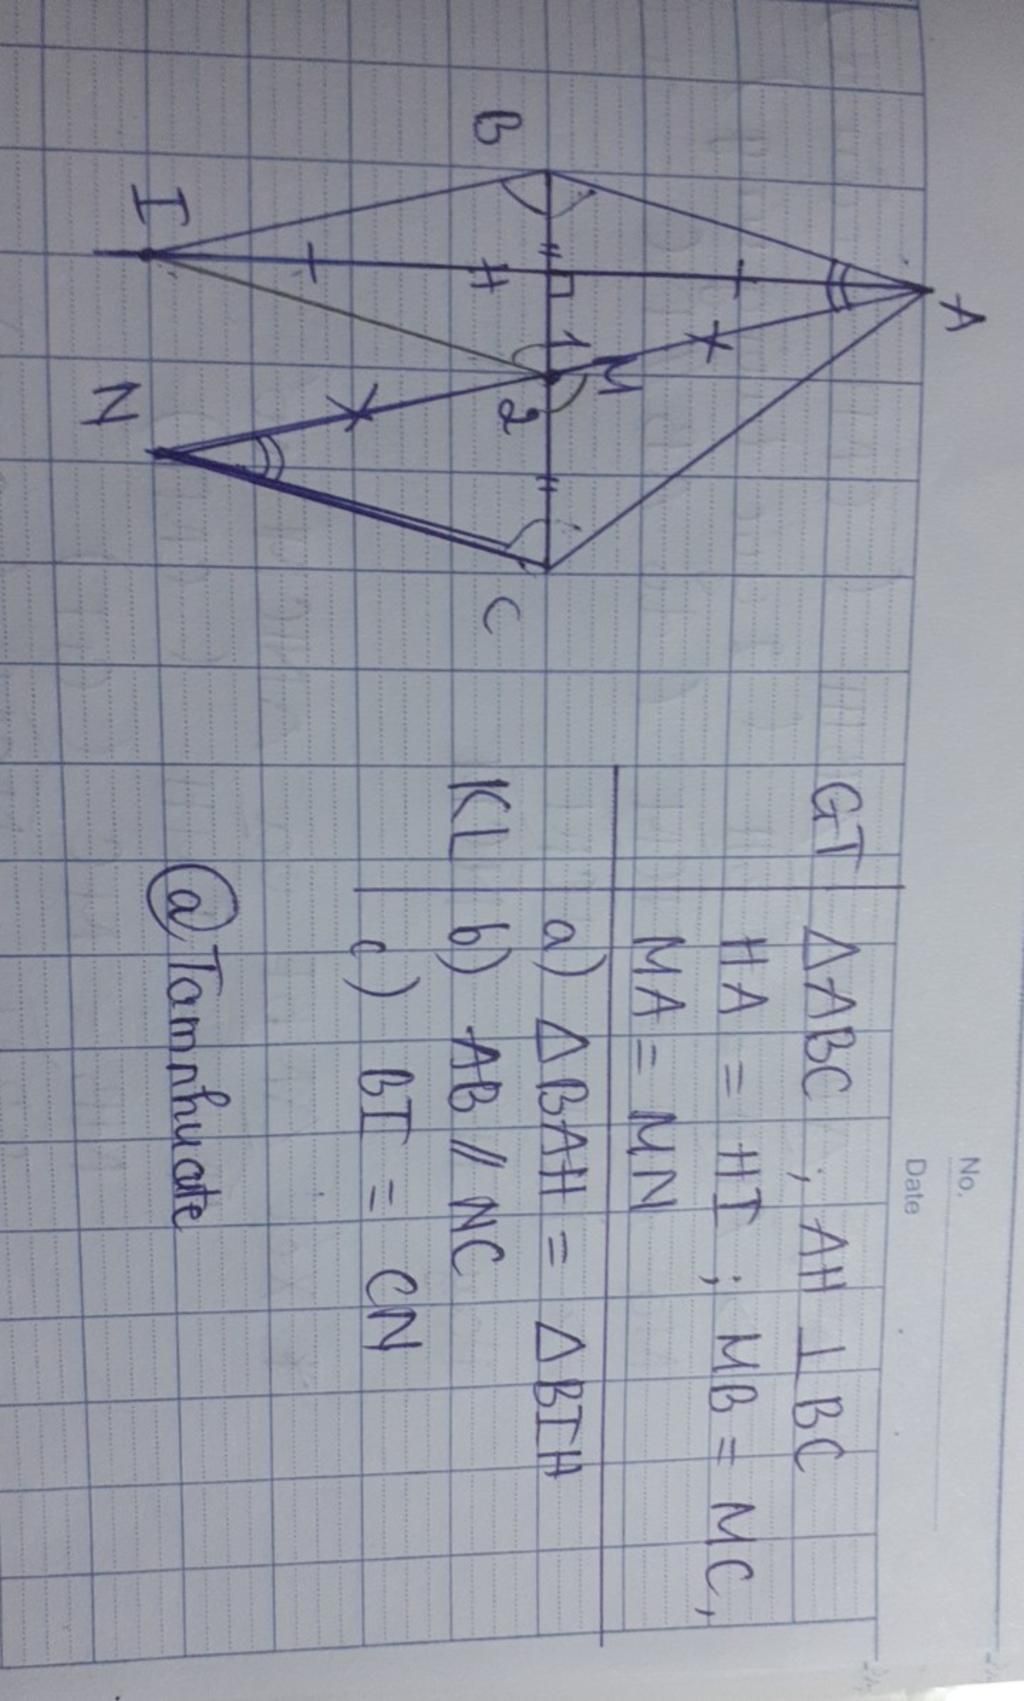 No.
Date
A
B
M
1
H
2
C
I
N
GT ΔABC ; AH ⊥ BC
HA = HI ; MB = MC,
MA = MN
a) ΔBAH = ΔBIH
KL b) AB // NC
c) BI = CN
@Tamnhuate